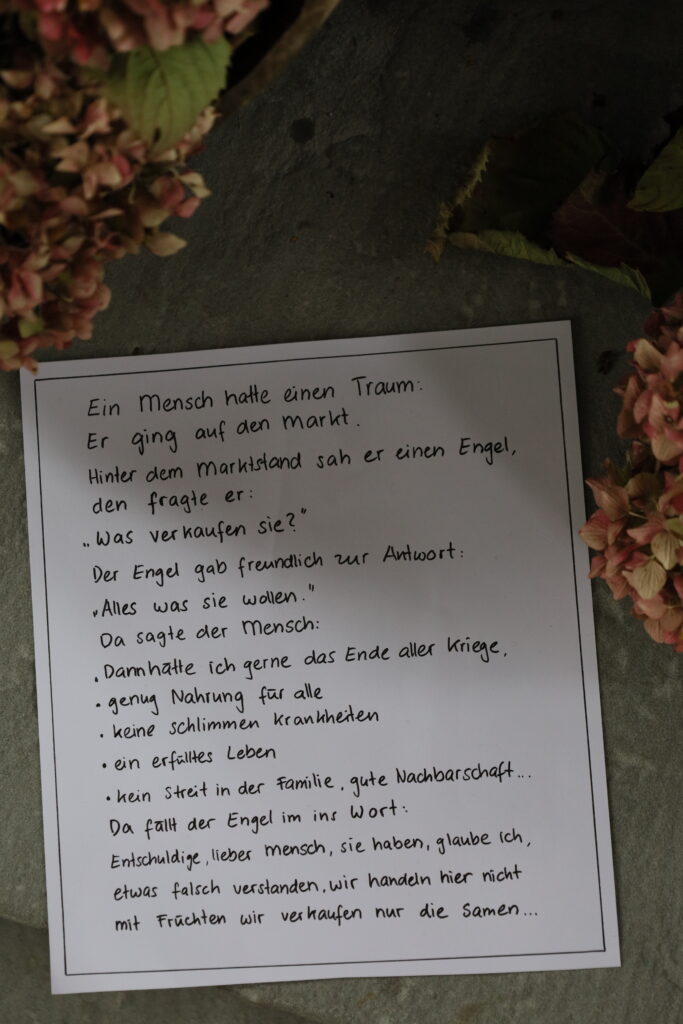 Ein Mensch hatte einen Traum:
Er ging auf den Markt.
Hinter dem Marktstand sah er einen Engel,
den fragte er:
„Was verkaufen sie?"
Der Engel gab freundlich zur Antwort:
„Alles was sie wollen."
Da sagte der Mensch:
„Dann hätte ich gerne das Ende aller Kriege,
• genug Nahrung für alle
• keine schlimmen Krankheiten
• ein erfülltes Leben
• kein Streit in der Familie, gute Nachbarschaft...
Da fällt der Engel im ins Wort:
Entschuldige, lieber Mensch, sie haben, glaube ich,
etwas falsch verstanden, wir handeln hier nicht
mit Früchten wir verkaufen nur die Samen...